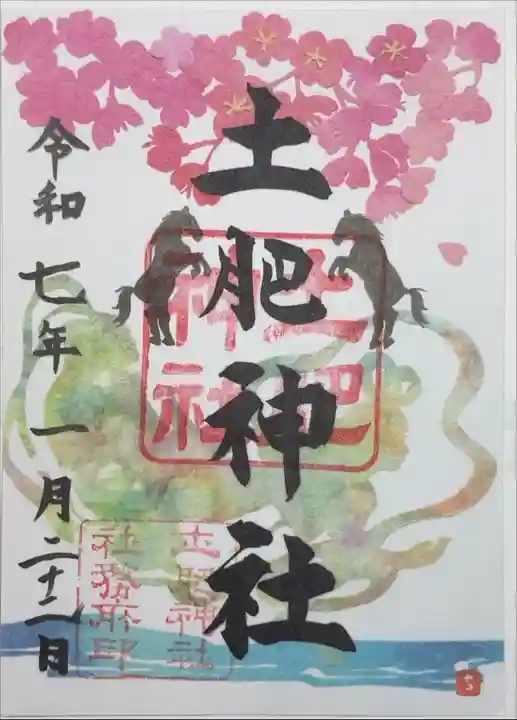 土肥神社
令和七年一月二十二日
土肥神社
土肥神社
社務所印